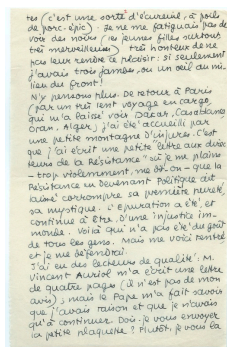 tes (c'est une sorte d'écureuil, à poils
de porc-épic). Je ne me fatiguais pas de
voir des noirs (les jeunes filles surtout
très merveilleuses) très honteux de ne
pas leur rendre le plaisir : si seulement
j'avais trois jambes, ou un œil au mi-
lieu du front !
N'y pensons plus. De retour à Paris
(par un très lent voyage en cargo,
qui m'a laissé voir Dakar, Casablanca
Oran, Alger) j'ai été accueilli par
une petite montagne d'injures. C'est
que j'ai écrit une petite lettre aux direc-
teurs de la Résistance où je me plains
- trop violemment, me dit-on - que la
Résistance en devenant Politique ait
laissé corrompre sa première pureté,
sa mystique. L'épuration a été, et
continue d'être, d'une injustice im-
monde. Voilà qui n'a pas été du goût
de tous les gens. Mais me voici rentré
et je me défendrai.
J'ai eu des lecteurs de qualité : M.
Vincent Auriol m'a écrit une lettre
de quatre pages (il n'est pas de mon
avis), mais le Pape m'a fait savoir
que j'avais raison et que je n'avais
qu'à continuer. Dois-je vous envoyer
la petite plaquette ? Plutôt je vous la